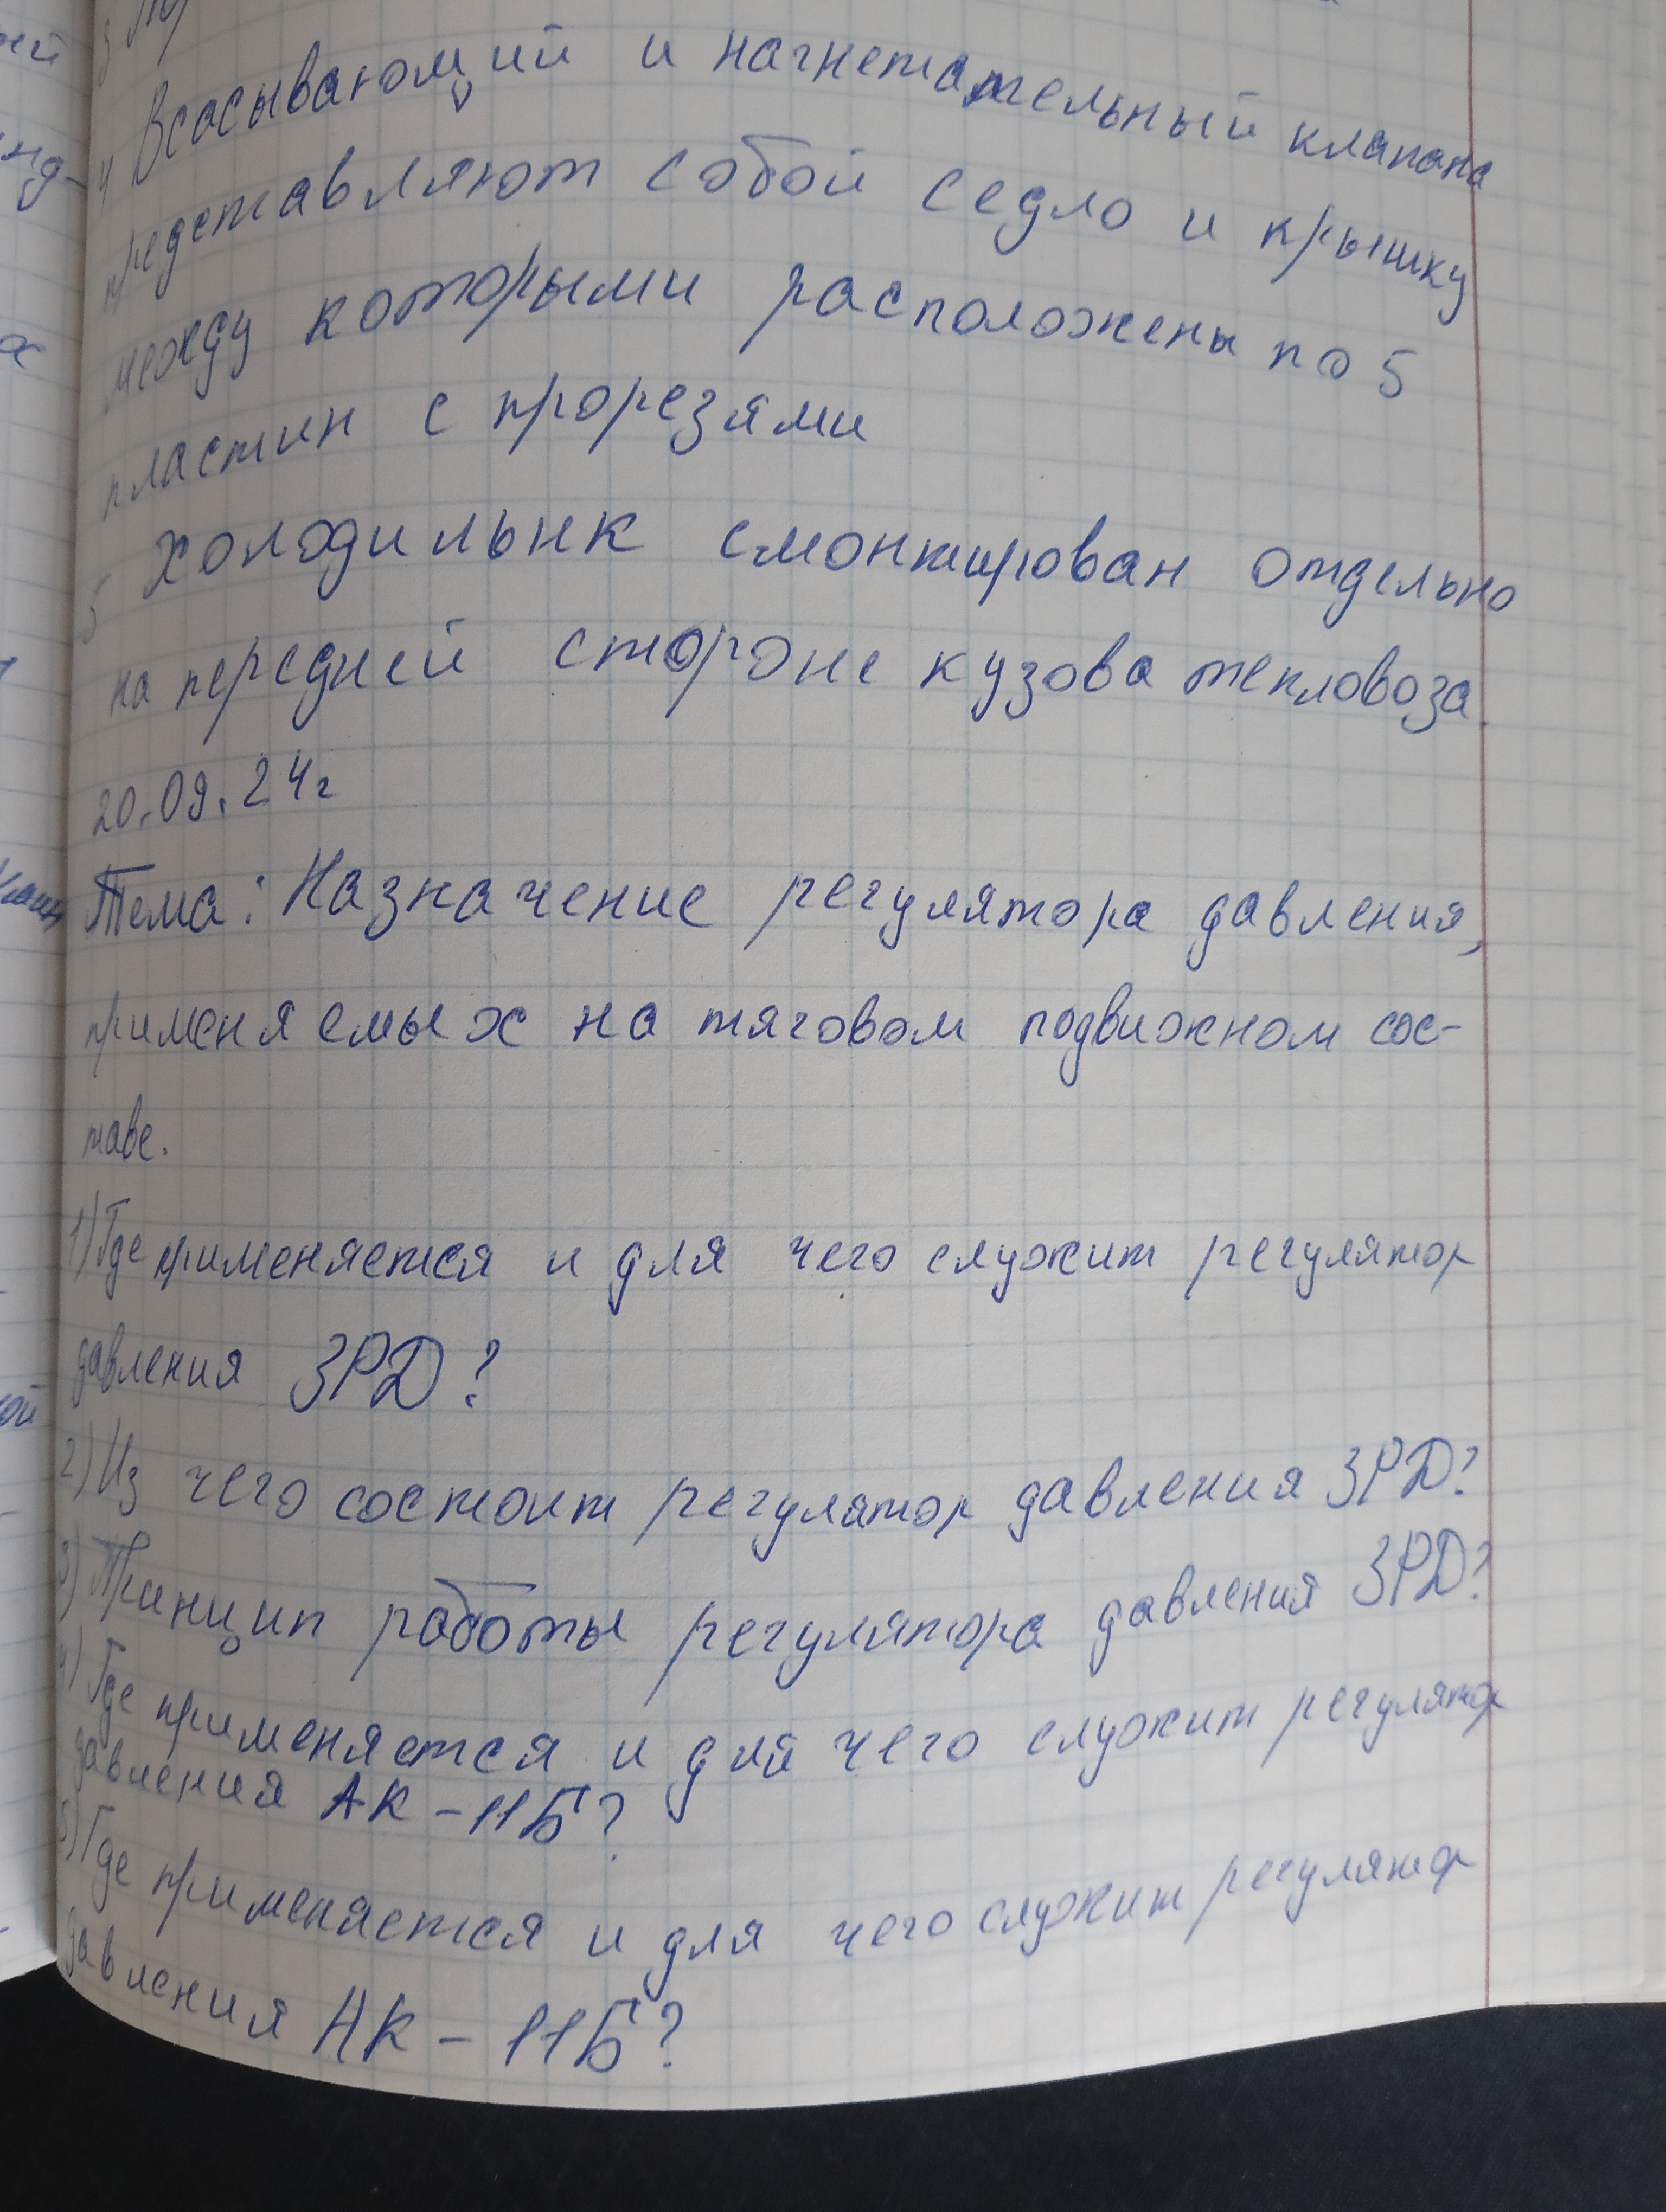 4 Всасывающий и нагнетательный клапана
представляют собой седло и крышку
между которыми расположены по 5
пластин с прорезями
5 Холодильнк смонтирован отдельно
на передней стороне кузова тепловоза.
20.09.24г
Тема: Назначение регулятора давления,
применяемых на тяговом подвижном сос-
таве.
1) Где применяется и для чего служит регулятор
давления ЗРД?
2) Из чего состоит регулятор давления ЗРД?
3) Принцип работы регулятора давления ЗРД?
4) Где применяется и для чего служит регулятор
давления АК-11Б?
5) Где применяется и для чего служит регулятор
давления АК-11Б?